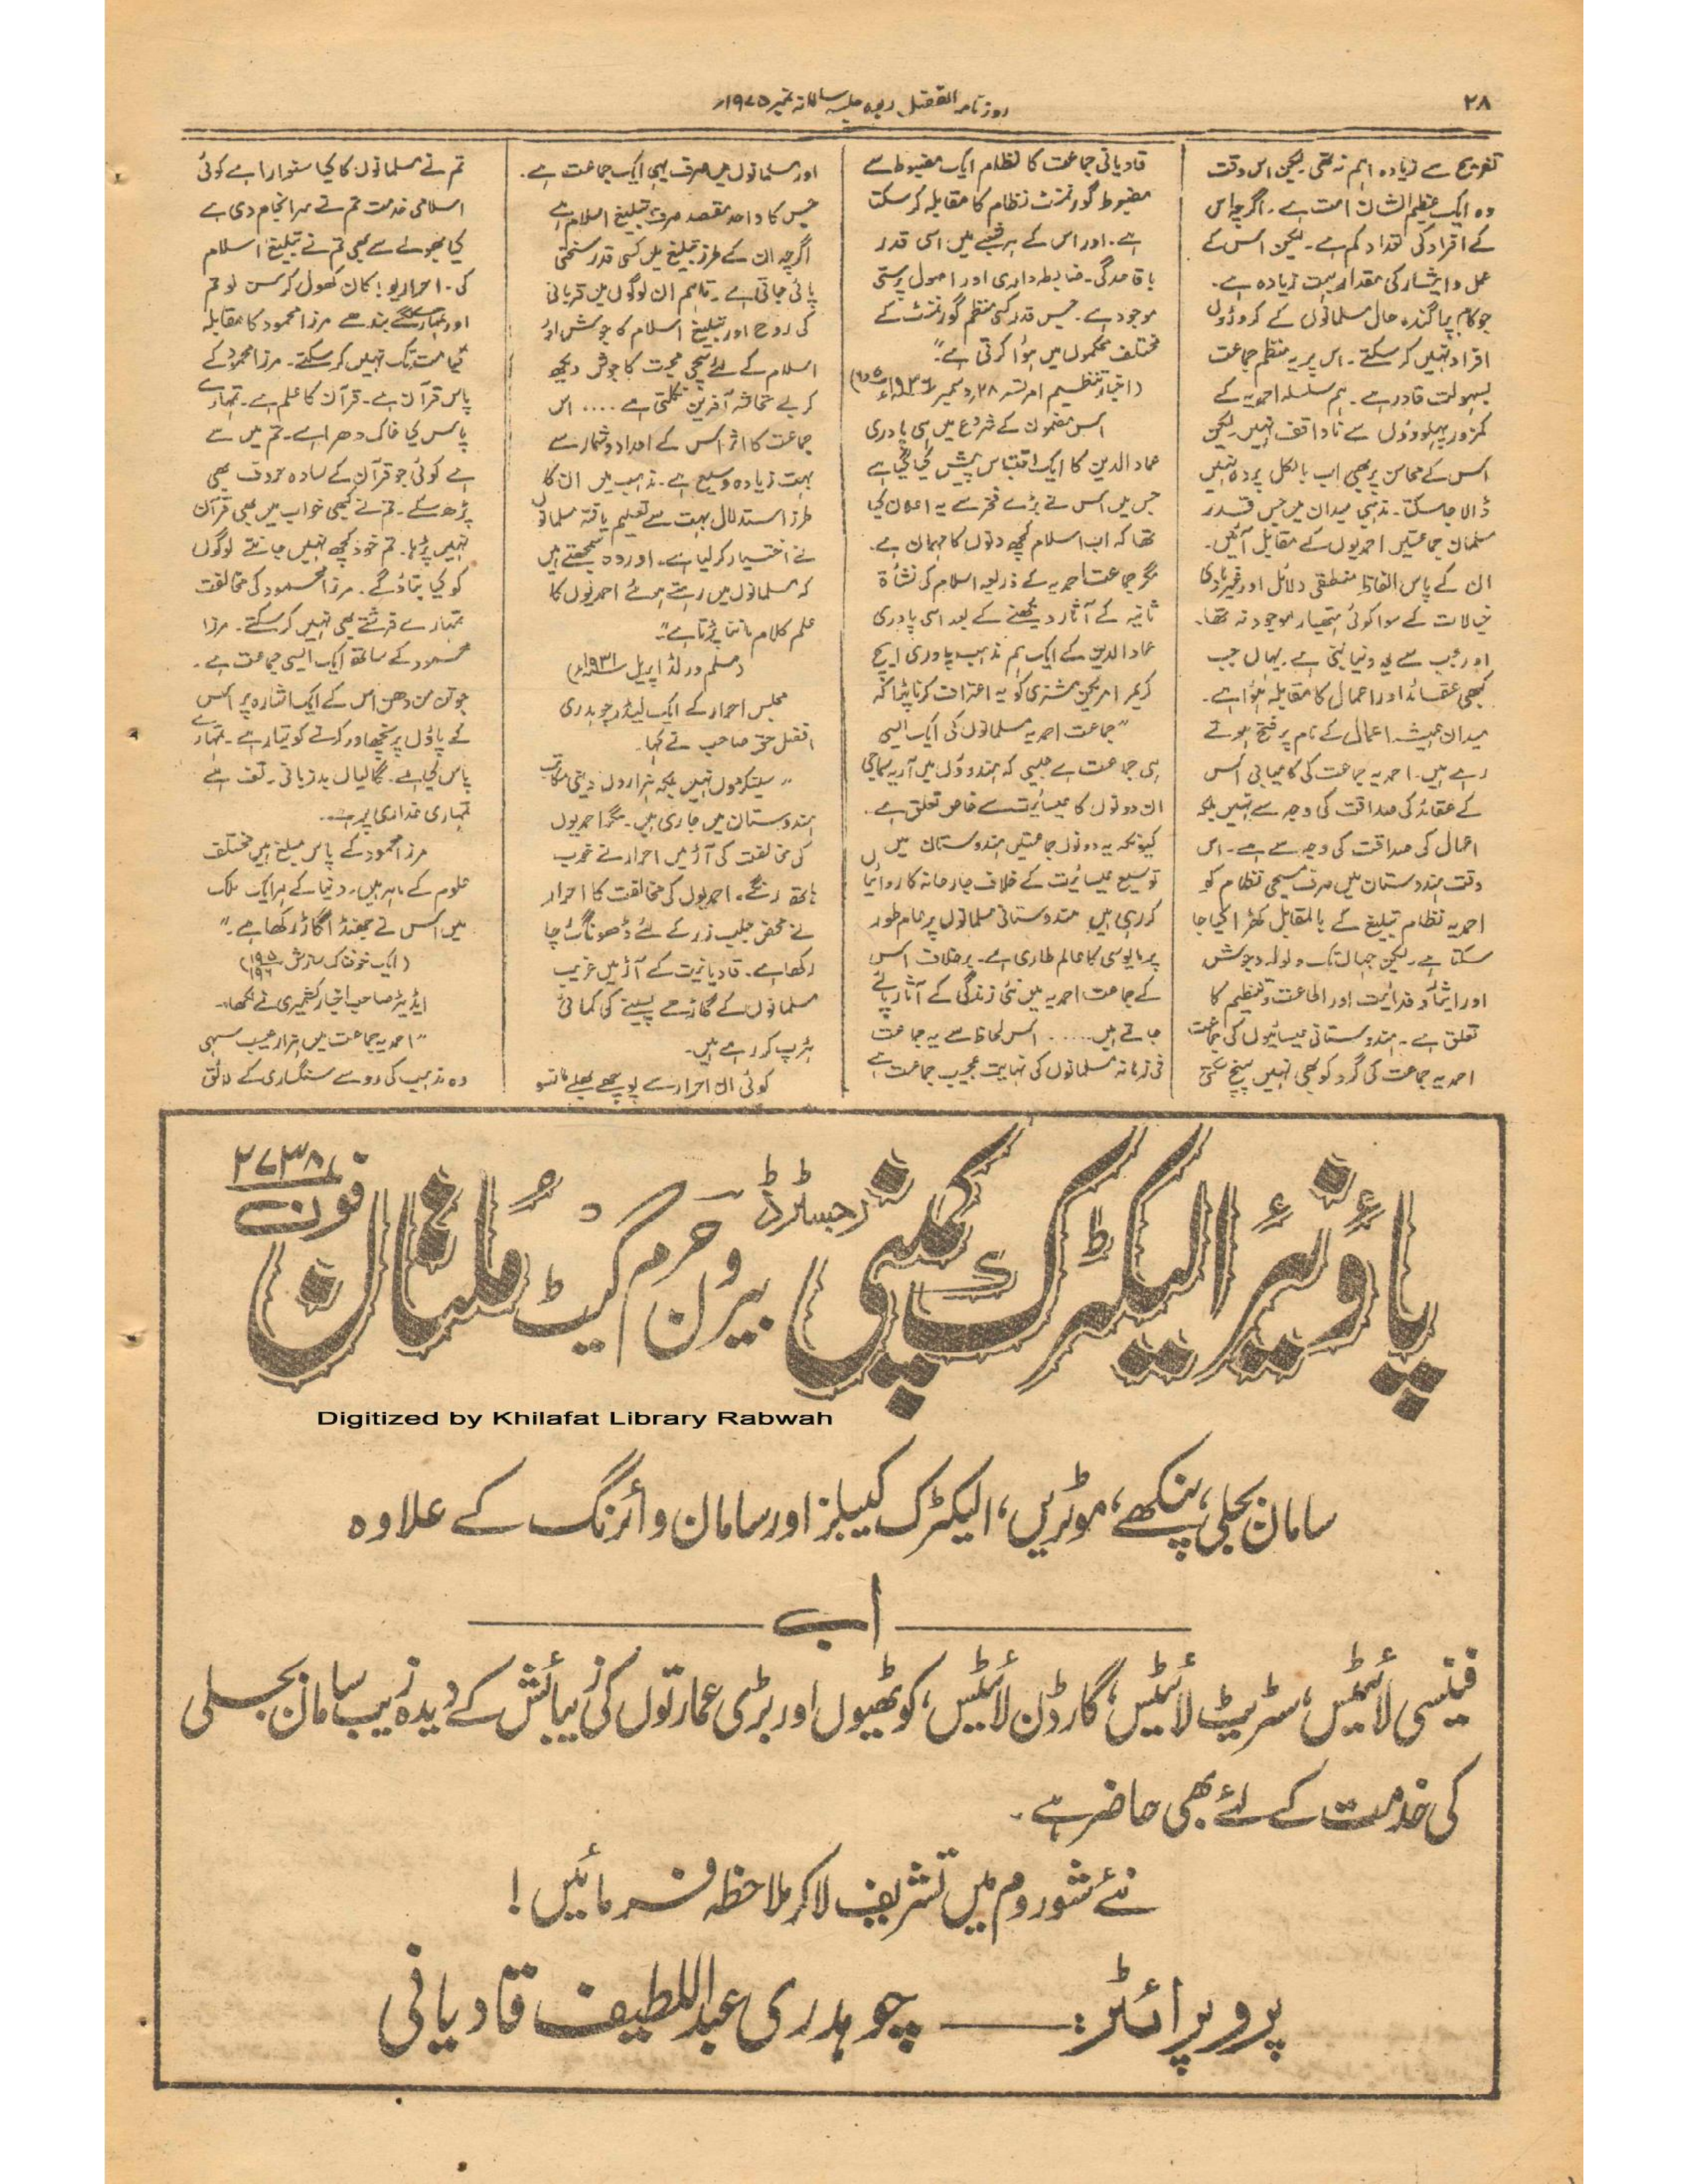 ۲۸
روزنامہ الفضل ربوہ جلسہ سالانہ نمبر ۱۹۷۵ء
تفریح سے زیادہ اہم نہ تھی۔ لیکن اس وقت
وہ ایک عظیم الشان امت ہے۔ اگرچہ اس
کے افراد کی تعداد کم ہے۔ لیکن اس کے
عمل و ایثار کی مقدار بہت زیادہ ہے۔
جو کام پراگندہ حال مسلمانوں کے کروڑوں
افراد نہیں کر سکتے۔ اس پر یہ منظم جماعت
بسہولت قادر ہے۔ ہم سلسلہ احمدیہ کے
کمزور پہلوؤں سے ناواقف نہیں۔ لیکن
اس کے محاسن پر بھی اب بالکل پردہ نہیں
ڈالا جا سکتا۔ مذہبی میدان میں جس قدر
مسلمان جماعتیں احمدیوں کے مقابل آئیں۔
ان کے پاس الفاظ منطقی دلائل اور غیر مادی
خیالات کے سوا کوئی ہتھیار موجود نہ تھا۔
اور جب سے یہ دنیا بنی ہے۔ یہاں جب
کبھی عقائد اور اعمال کا مقابلہ ہوا ہے۔
میدان ہمیشہ اعمال کے نام پر فتح ہوتے
رہے ہیں۔ احمدیہ جماعت کی کامیابی اس
کے عقائد کی صداقت کی وجہ سے نہیں بلکہ
اعمال کی صداقت کی وجہ سے ہے۔ اس
وقت ہندوستان میں صرف مسیحی نظام کو
احمدیہ نظام تبلیغ کے بالمقابل کھڑا کیا جا
سکتا ہے۔ لیکن جہاں تک ولولہ و جوش
اور ایثار و فدائیت اور اطاعت و تنظیم کا
تعلق ہے۔ ہندوستانی عیسائیوں کی جماعت
احمدیہ جماعت کی گرد کو بھی نہیں پہنچ سکتی
قادیانی جماعت کا نظام ایک مضبوط سے
مضبوط گورنمنٹ نظام کا مقابلہ کر سکتا
ہے۔ اور اس کے ہر شعبے میں اسی قدر
باقاعدگی۔ ضابطہ داری اور اصول پرستی
موجود ہے۔ جس قدر کسی منظم گورنمنٹ کے
مختلف محکموں میں ہوا کرتی ہے"۔
(اخبار تنظیم امرتسر ۲۸ دسمبر ۱۹۲۶ء)
اس مضمون کے شروع میں ہی پادری
عماد الدین کا ایک اقتباس پیش کیا گیا ہے
جس میں اس نے بڑے فخر سے یہ اعلان کیا
تھا کہ اب اسلام کچھ دنوں کا مہمان ہے۔
مگر جماعت احمدیہ کے ذریعہ اسلام کی نشأۃ
ثانیہ کے آثار دیکھنے کے بعد اسی پادری
عماد الدین کے ایک ہم مذہب پادری ایچ
کریمر امریکن مشنری کو یہ اعتراف کرنا پڑا کہ
"جماعت احمدیہ مسلمانوں کی ایک ایسی
ہی جماعت ہے جیسی کہ ہندوؤں میں آریہ سماجی
ان دونوں کا عیسائیت سے خاص تعلق ہے۔
کیونکہ یہ دونوں جماعتیں ہندوستان میں
توسیع عیسائیت کے خلاف جارحانہ کاروائیاں
کر رہی ہیں ہندوستانی مسلمانوں پر عام طور
پر مایوسی کا عالم طاری ہے۔ برخلاف اس
کے جماعت احمدیہ میں نئی زندگی کے آثار پائے
جاتے ہیں..... اس لحاظ سے یہ جماعت
فی زمانہ مسلمانوں کی نہایت عجیب جماعت ہے
اور مسلمانوں میں صرف یہی ایک جماعت ہے۔
جس کا واحد مقصد صرف تبلیغ اسلام ہے
اگرچہ ان کے طرز تبلیغ میں کسی قدر سختی
پائی جاتی ہے۔ تاہم ان لوگوں میں قربانی
کی روح اور تبلیغ اسلام کا جوش اور
اسلام کے لئے سچی محبت کا جوش دیکھ
کر بے تحاشہ آفرین نکلتی ہے .... اس
جماعت کا اثر اس کے اعداد و شمار سے
بہت زیادہ وسیع ہے۔ مذہب میں ان کا
طرز استدلال بہت سے تعلیم یافتہ مسلمانوں
نے اختیار کر لیا ہے۔ اور وہ سمجھتے ہیں
کہ مسلمانوں میں رہتے ہوئے احمدیوں کا
علم کلام ماننا پڑتا ہے"۔
(مسلم ورلڈ اپریل ۱۹۳۱ء)
مجلس احرار کے ایک لیڈر چوہدری
افضل حق صاحب نے کہا۔
"سینکڑوں نہیں بلکہ ہزاروں دینی مکاتب
ہندوستان میں جاری ہیں۔ مگر احمدیوں
کی مخالفت کی آڑ میں احرار نے خوب
ہاتھ رنگے۔ احمدیوں کی مخالفت کا احرار
نے محض جلب زر کے لئے ڈھونگ رچا
رکھا ہے۔ قادیانیت کے آڑ میں غریب
مسلمانوں کے گاڑھے پسینے کی کمائی
ہڑپ کر رہے ہیں۔
کوئی ان احرار سے پوچھے بھلے مانسو
تم نے مسلمانوں کا کیا سنوارا ہے کوئی
اسلامی خدمت تم نے سرانجام دی ہے
کیا بھولے سے بھی تم نے تبلیغ اسلام
کی۔ احراریو! کان کھول کر سن لو تم
اور تمہارے لگے بندھے مرزا محمود کا مقابلہ
قیامت تک نہیں کر سکتے۔ مرزا محمود کے
پاس قرآن ہے۔ قرآن کا علم ہے۔ تمہارے
پاس کیا خاک دھرا ہے۔ تم میں سے
ہے کوئی جو قرآن کے سادہ حروف بھی
پڑھ سکے۔ تم نے کبھی خواب میں بھی قرآن
نہیں پڑھا۔ تم خود کچھ نہیں جانتے لوگوں
کو کیا بتاؤ گے۔ مرزا محمود کی مخالفت
تمہارے فرشتے بھی نہیں کر سکتے۔ مرزا
محمود کے ساتھ ایک ایسی جماعت ہے۔
جو تن من دھن اس کے ایک اشارہ پر اس
کے پاؤں پر نچھاور کرنے کو تیار ہے۔ تمہارے
پاس کیا ہے۔ گالیاں بدزبانی۔ تف ہے
تمہاری غداری پر ...
مرزا محمود کے پاس مبلغ ہیں مختلف
علوم کے ماہر ہیں۔ دنیا کے ہر ایک ملک
میں اس نے جھنڈا گاڑ رکھا ہے۔"
(ایک خوفناک سازش ۱۹۵/۱۹۶)
ایڈیٹر صاحب اخبار کشمیری نے لکھا۔
"احمدیہ جماعت میں ہزار عیب سہی
وہ مذہب کی رو سے سنگساری کے لائق
فون ۲۷۳۸
پائونیئر الیکٹرک کمپنی رجسٹرڈ بیرون حرم گیٹ ملتان
Digitized by Khilafat Library Rabwah
سامان بجلی، پنکھے، موٹریں، الیکٹرک کیبلز اور سامان وائرنگ کے علاوہ
اب
فینسی لائیٹیں، سٹریٹ لائیٹیں، گارڈن لائیٹیں، کوٹھیوں اور بڑی عمارتوں کی زیبائش کے دیدہ زیب سامان بجلی
کی خدمت کے لئے بھی حاضر ہے۔
نئے شو روم میں تشریف لا کر ملاحظہ فرمائیں!
پروپرائٹر: — چوہدری عبداللطیف قادیانی